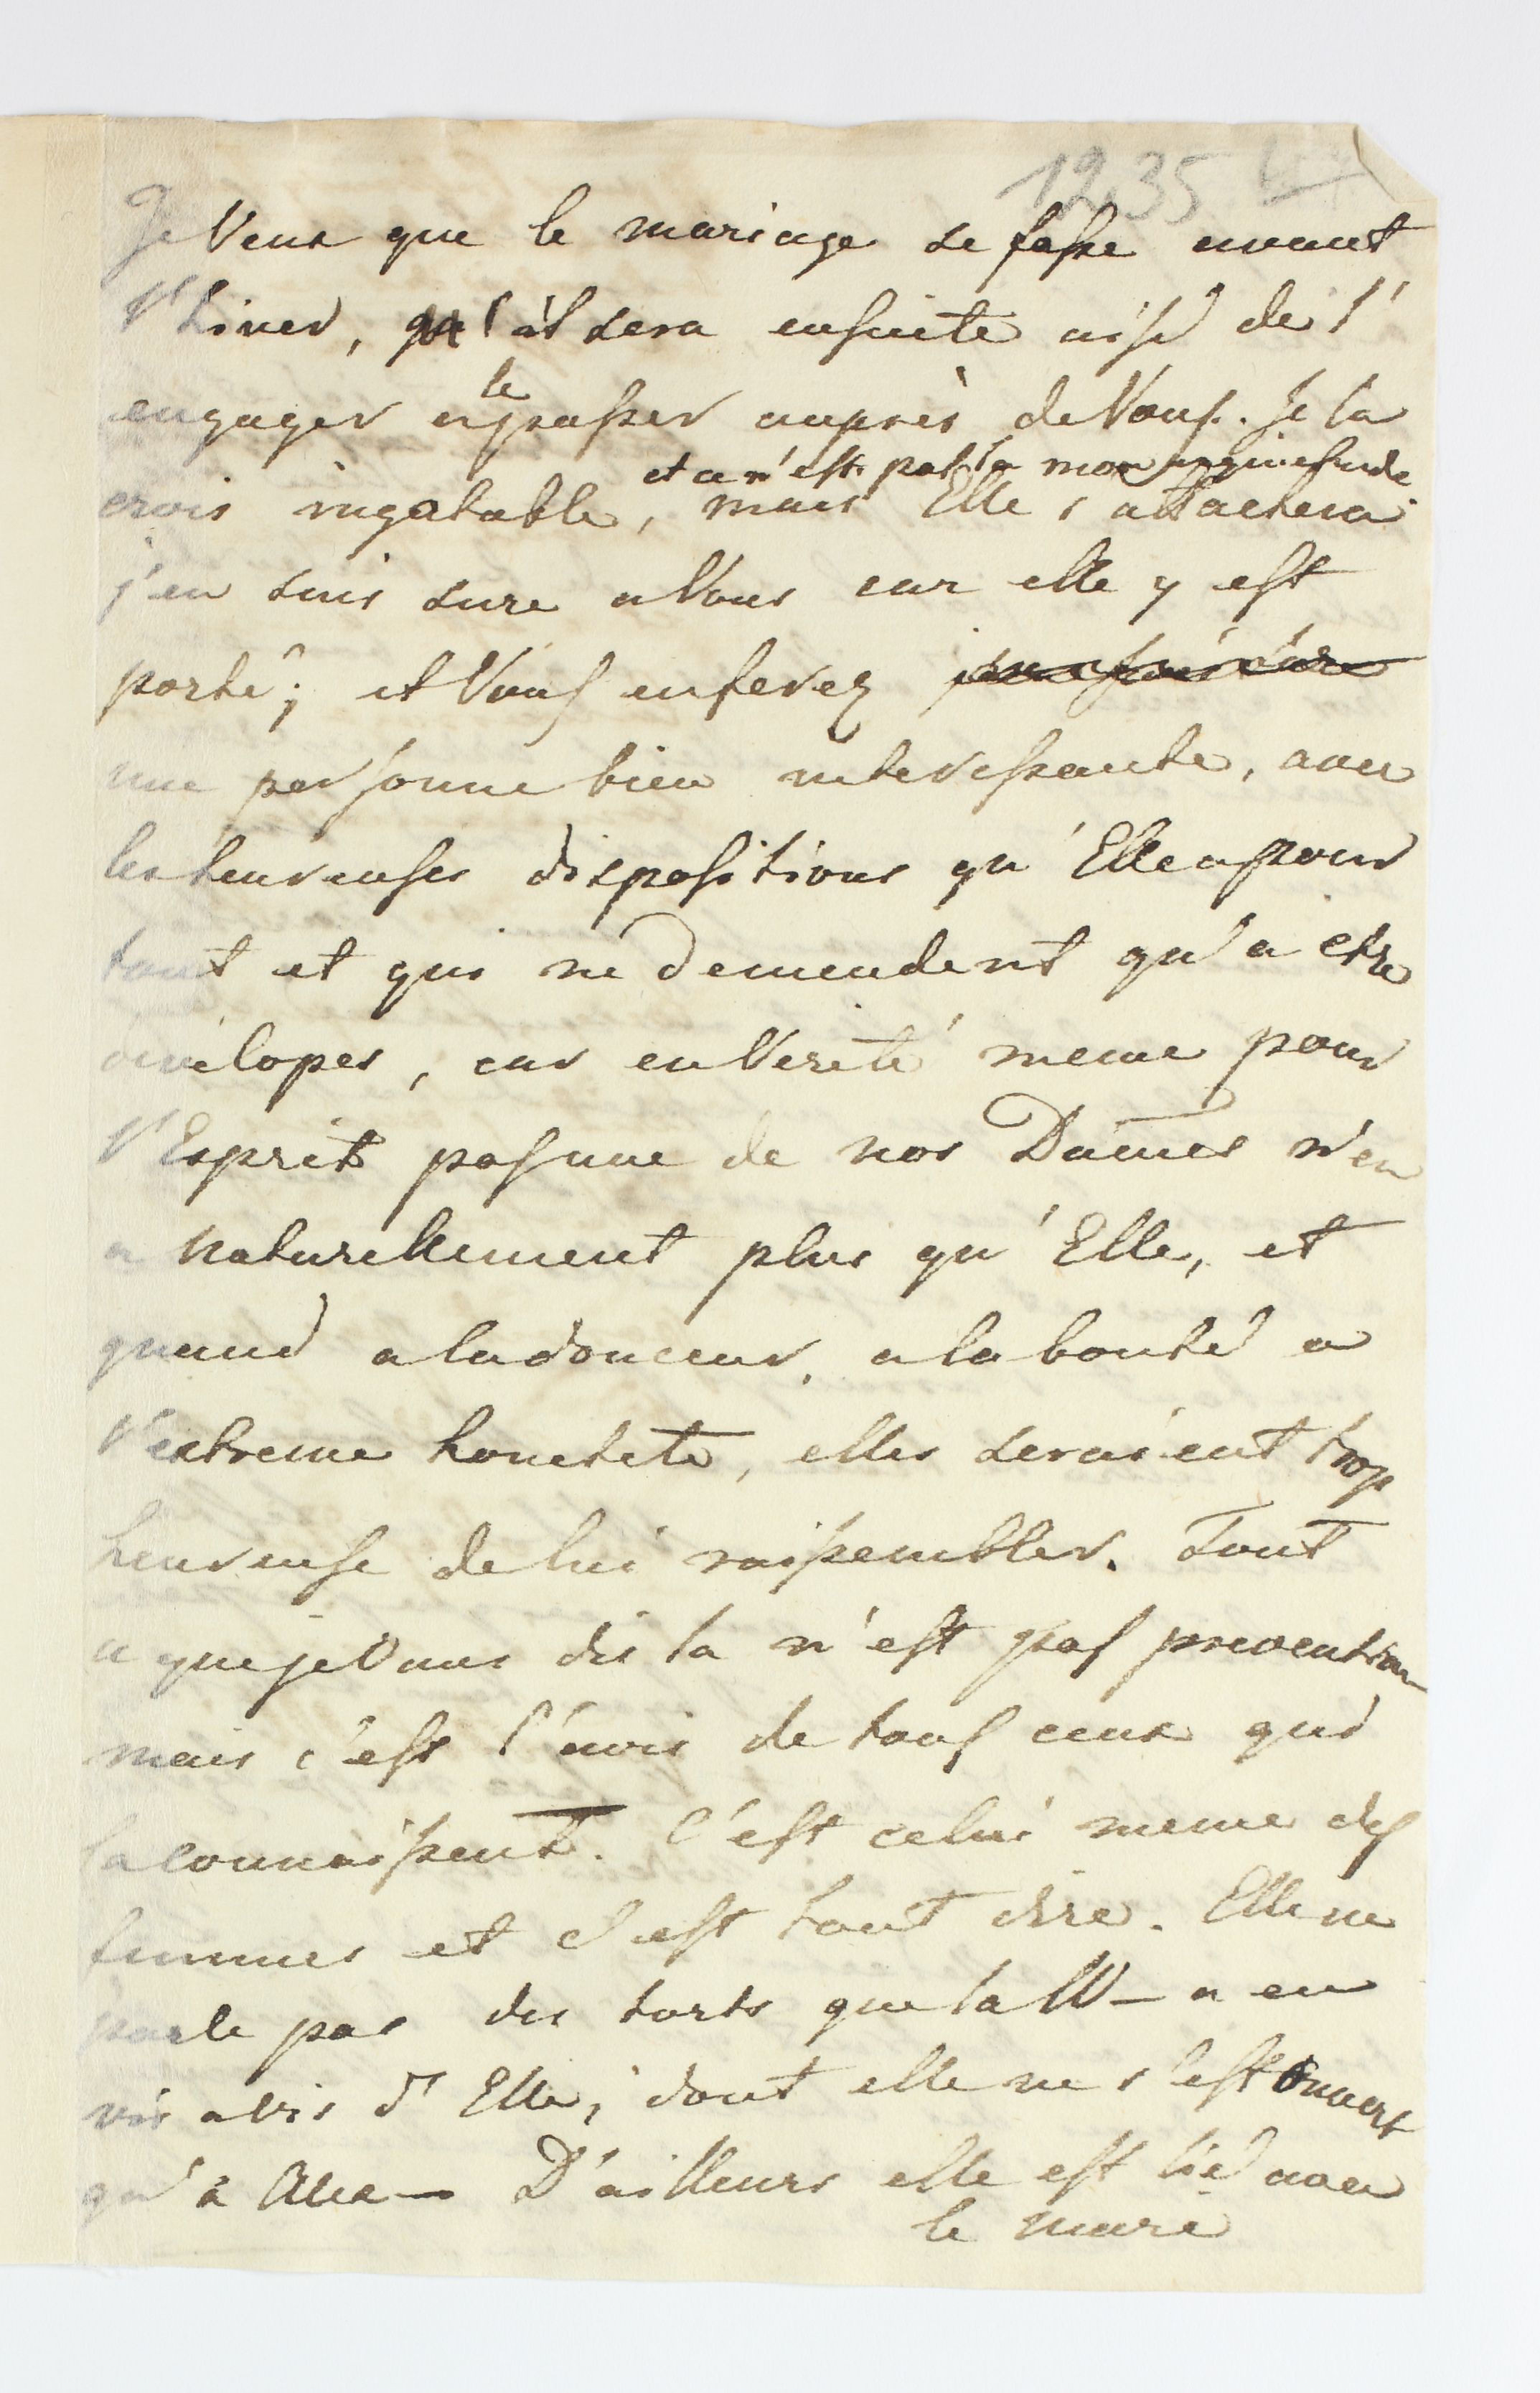 12,35
Je Veux que le mariage se fasse avant
l'hiver, qu'il sera ensuite aisé de l'
engager a le passer auprès de Vous. Je la
et ce n'est pas la mon inquietude
crois ingatable, mais Elle s'attachera
j'en suis sure a Vous car elle y est
porté; et Vous en ferez
une personne bien interessante, avec
les heureuses dispositions qu'Elle a pour
tout et qui ne demendent qu'a etre
dévelopes, car en Verité meme pour
l'Esprit pas une de nos Dames n'en
a naturellement plus qu'Elle, et
quand a la douceur, a la bonté a
l'extreme honeteté, elles seraient trop
heureuse de lui raissembler. Tout
ce que je Vous dis la n'est pas prevention
mais c'est l'avis de tous ceux qui
la connaissent. C'est celui meme des
femmes et c'est tout dire. Elle ne
parle pas des torts que la W— a eu
vis a vis d'Elle, dont elle ne s'est ouvert
qu'à Alex— D'ailleurs elle est lié avec
le mari